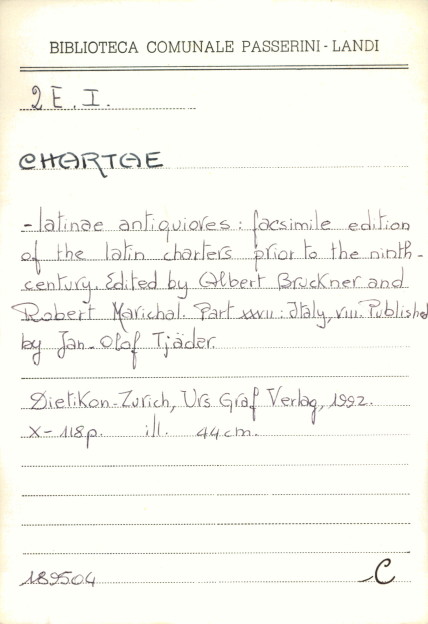 BIBLIOTECA COMUNALE PASSERINI - LANDI
2 E. I.
CHARTAE
- latinae antiquiores : facsimile edition
of the latin charters prior to the ninth -
century. Edited by Albert Bruckner and
Robert Marichal. Part XXVII : Italy, VIII. Published
by Jan-Olof Tjäder.
Dietikon-Zurich, Urs Graf Verlag, 1992.
X - 118 p. ill. 44 cm.
189504
C